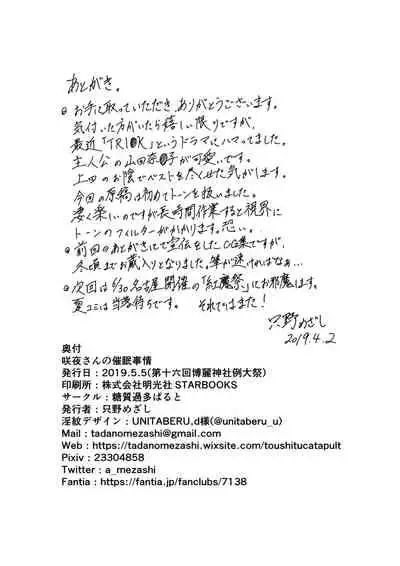 あとがき。
◎お手に取っていただき、ありがとうございます。
気付いた方がいたら嬉しい限りですが、
最近「TRI●K」というドラマにハマってました。
主人公の山田奈●子が可愛いです。
上田のお陰でベストを尽くせた気がします。
今回の原稿は初めてトーンを扱いました。
凄く楽しいのですが長時間作業すると視界に
トーンのフィルターがかかります。恐い。
◎前回のあとがきにて宣伝をしたCG集ですが、
冬頃までお蔵入りとなりました。筆が速ければなぁ…
◎次回は6/30名古屋開催の「紅魔祭」にお邪魔します。
夏コミは当落待ちです。それでわまた!
只野めざし
2019.4.2
奥付
咲夜さんの催眠事情
発行日:2019.5.5(第十六回博麗神社例大祭)
印刷所:株式会社明光社 STARBOOKS
サークル:糖質過多ぱると
発行者:只野めざし
淫紋デザイン:UNITABERU,d様(@unitaberu_u)
Mail:tadanomezashi@gmail.com
Web:https://tadanomezashi.wixsite.com/toushitucatapult
Pixiv:23304858
Twitter:a_mezashi
Fantia:https://fantia.jp/fanclubs/7138